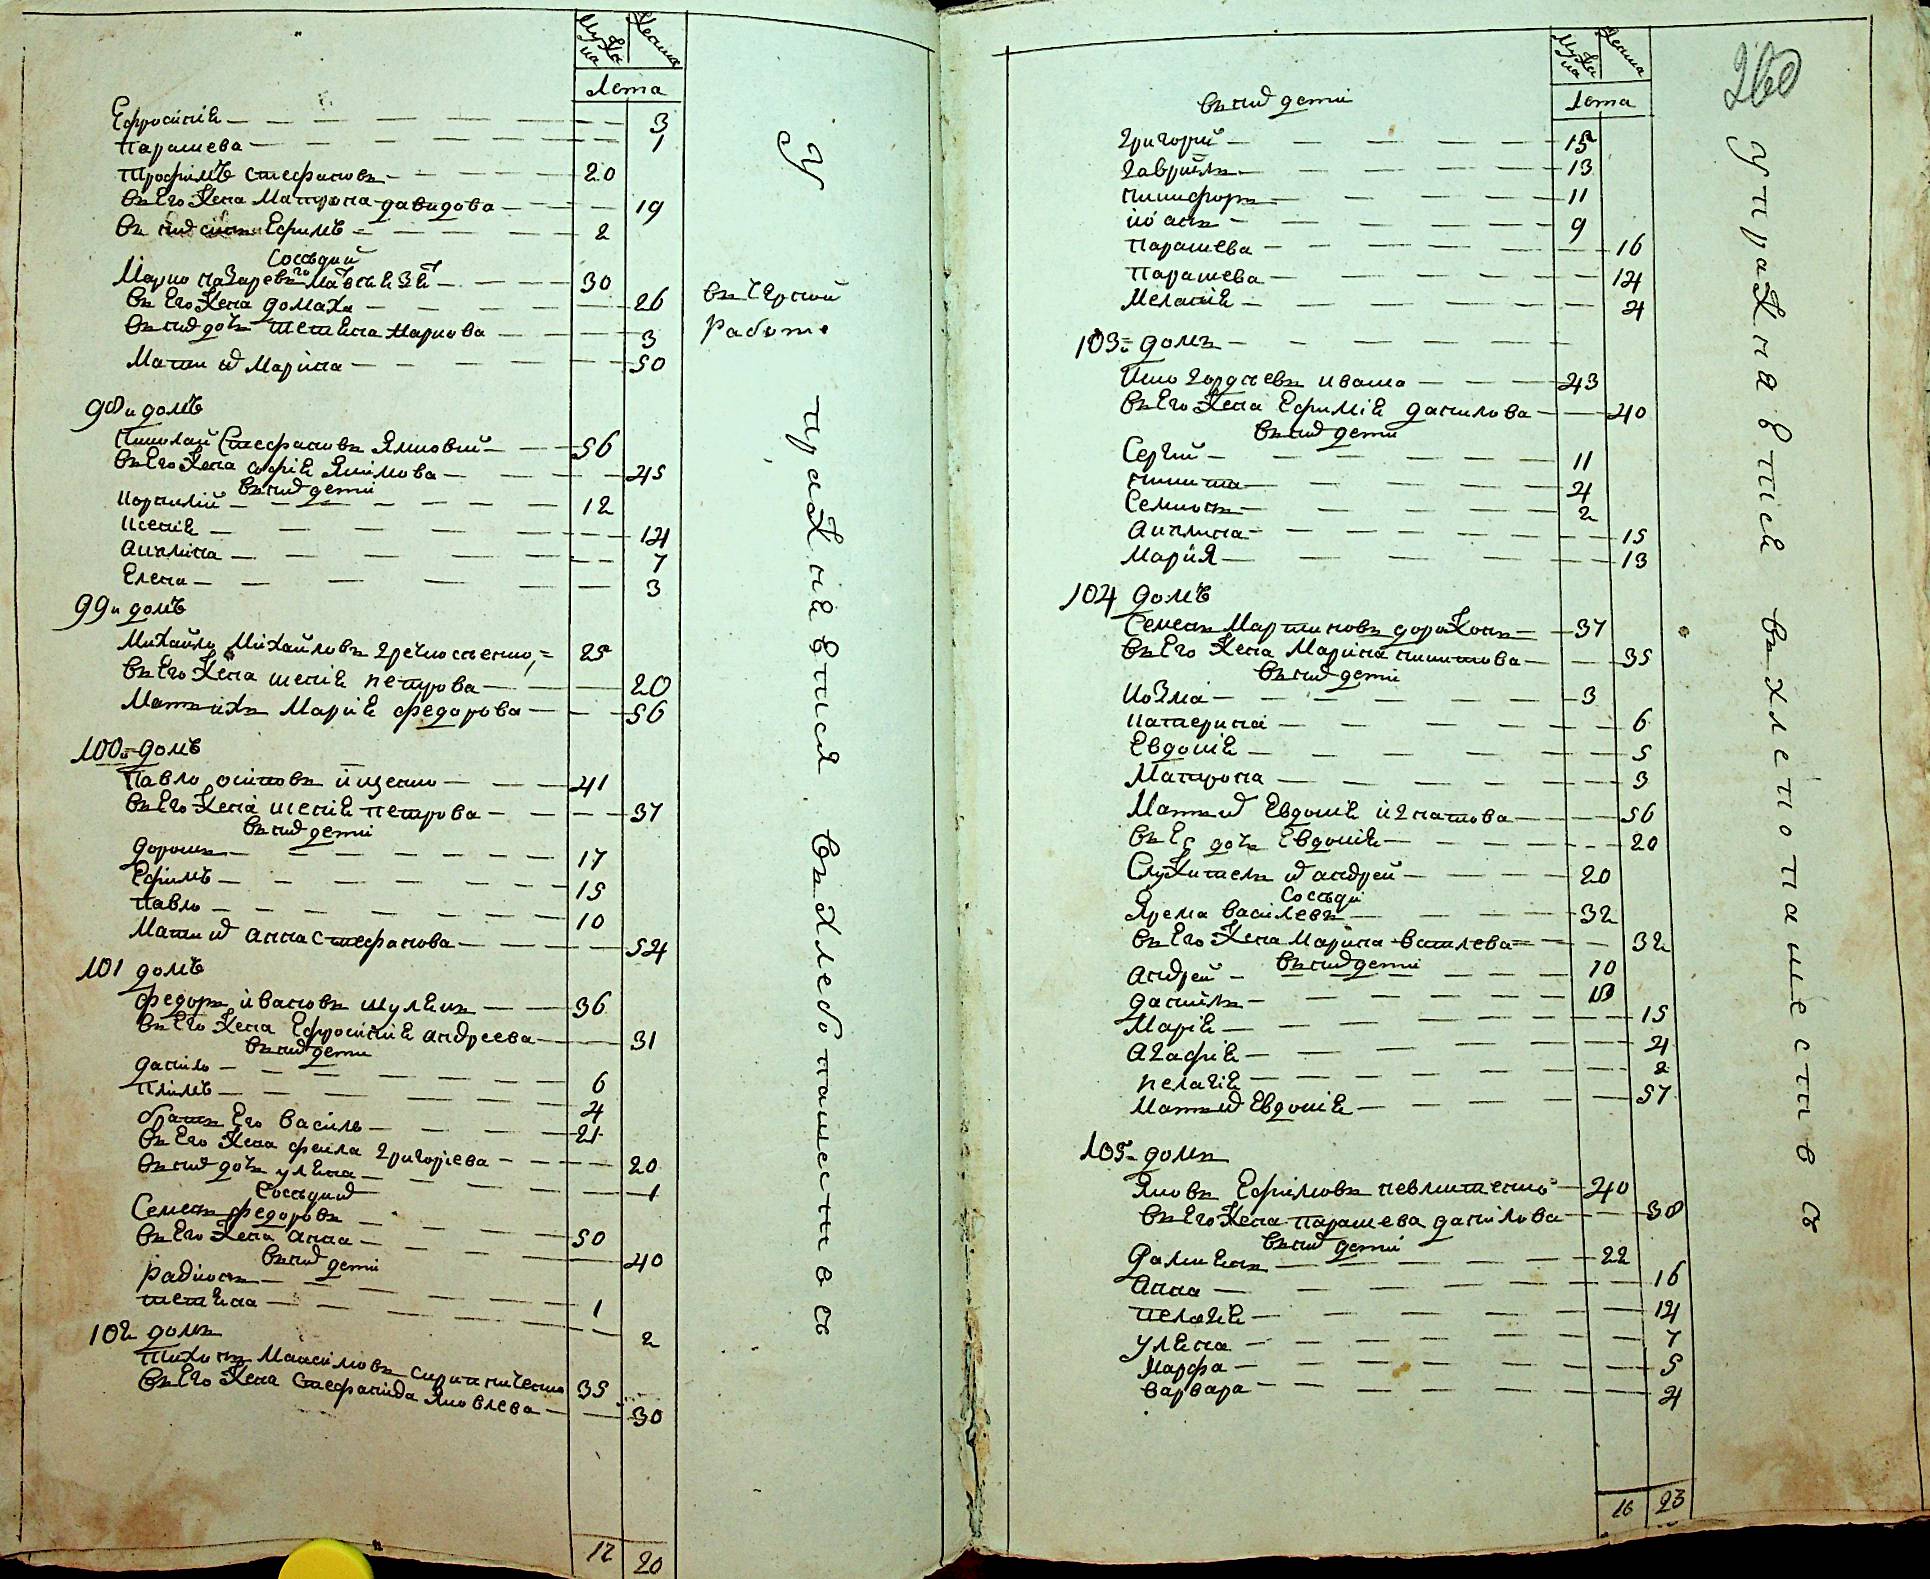 Мужеска Женска
Лета
Ефросинiя 3
Парасцева 1
Трофимъ Стефановъ 20
въ Его жена Матрона давидова 19
въ них синъ Ефимъ 2
Сосѣдии
30
въ Его жена домаха 26
въ них дочь тетяна Маркова 3
Мати их Марина 50
въ Черной
работѣ
98и домъ
Николай Стефановъ Яковий 56
въ Его жена софiя Якимова 45
въ них дети
Корнилий 12
Ксенiя 14
Акилина 7
Елена 3
99и домъ
Михайло Михайловъ 25
въ Его жена ксенiя петрова 20
Мать ихъ Марiя федорова 56
100: домъ
Павло осиповъ ищенко 41
въ Его жена ксенiя петрова 37
въ них дети
дорошъ 17
Ефимъ 15
Павло 10
Мати их анна Стефанова 54
101 домъ
федоръ ивановъ шуляк 36
въ Его жена Ефросинiя андреева 31
въ них дети
данило 6
Климъ 4
братъ Его василь 21
въ Его жена фекла григорiева 20
въ них дочь уляна 1
Сосѣди их
Семенъ федоровъ 50
въ Его жена анна 40
въ них дети
радионъ 1
тетяна 2
102 домъ
Тихонъ Максимовъ 35
въ Его жена Стефанида Яковлева 30
12 20
Упражняется въ хлебопашестве
260
Мужеска Женска
Лета
въ них дети
григорий 15
гаврiилъ 13
никифоръ 11
iоанъ 9
Парасцева 16
Парасцева 14
Меланiя 4
103: домъ
гордѣевъ ивашо 43
въ Его жена Ефимiя данилова 40
въ них дети
Сергий 11
никита 4
Семионъ 2
Акилина 15
Марiя 13
104 домъ
Семенъ Мартиновъ дорожонъ 37
въ Его жена Марина никитова 35
въ них дети
Козма 3
Катерина 6
Евдокiя 5
Матрона 3
Мати их Евдокiя игнатова 56
въ Ее дочь Евдокiя 20
Служитель их андрей 20
Сосѣди
Ярема василевъ 32
въ Его жена Марина василева 32
въ них дети
андрей 10
данiилъ
Марiя 15
Агафiя 4
пелагiя 2
Мати их Евдокiя 57
105: домъ
Яковъ Ефимовъ невкитенко 40
въ Его жена парасцева данилова 38
въ них дети
дамиянъ 22
анна 16
пелагiя 14
уляна 7
Марфа 5
варвара 4
16 23
упражнявтися въ хлебопашестве